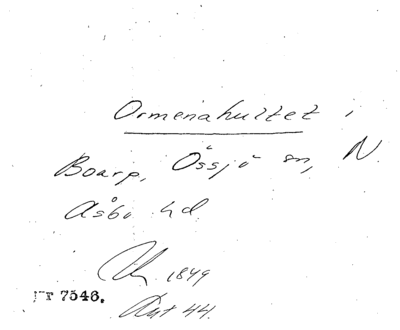 Ormenahultet i
Boarp, Össjö sn, N.
Åsbo hd.
1849
Nr 7546.
44.